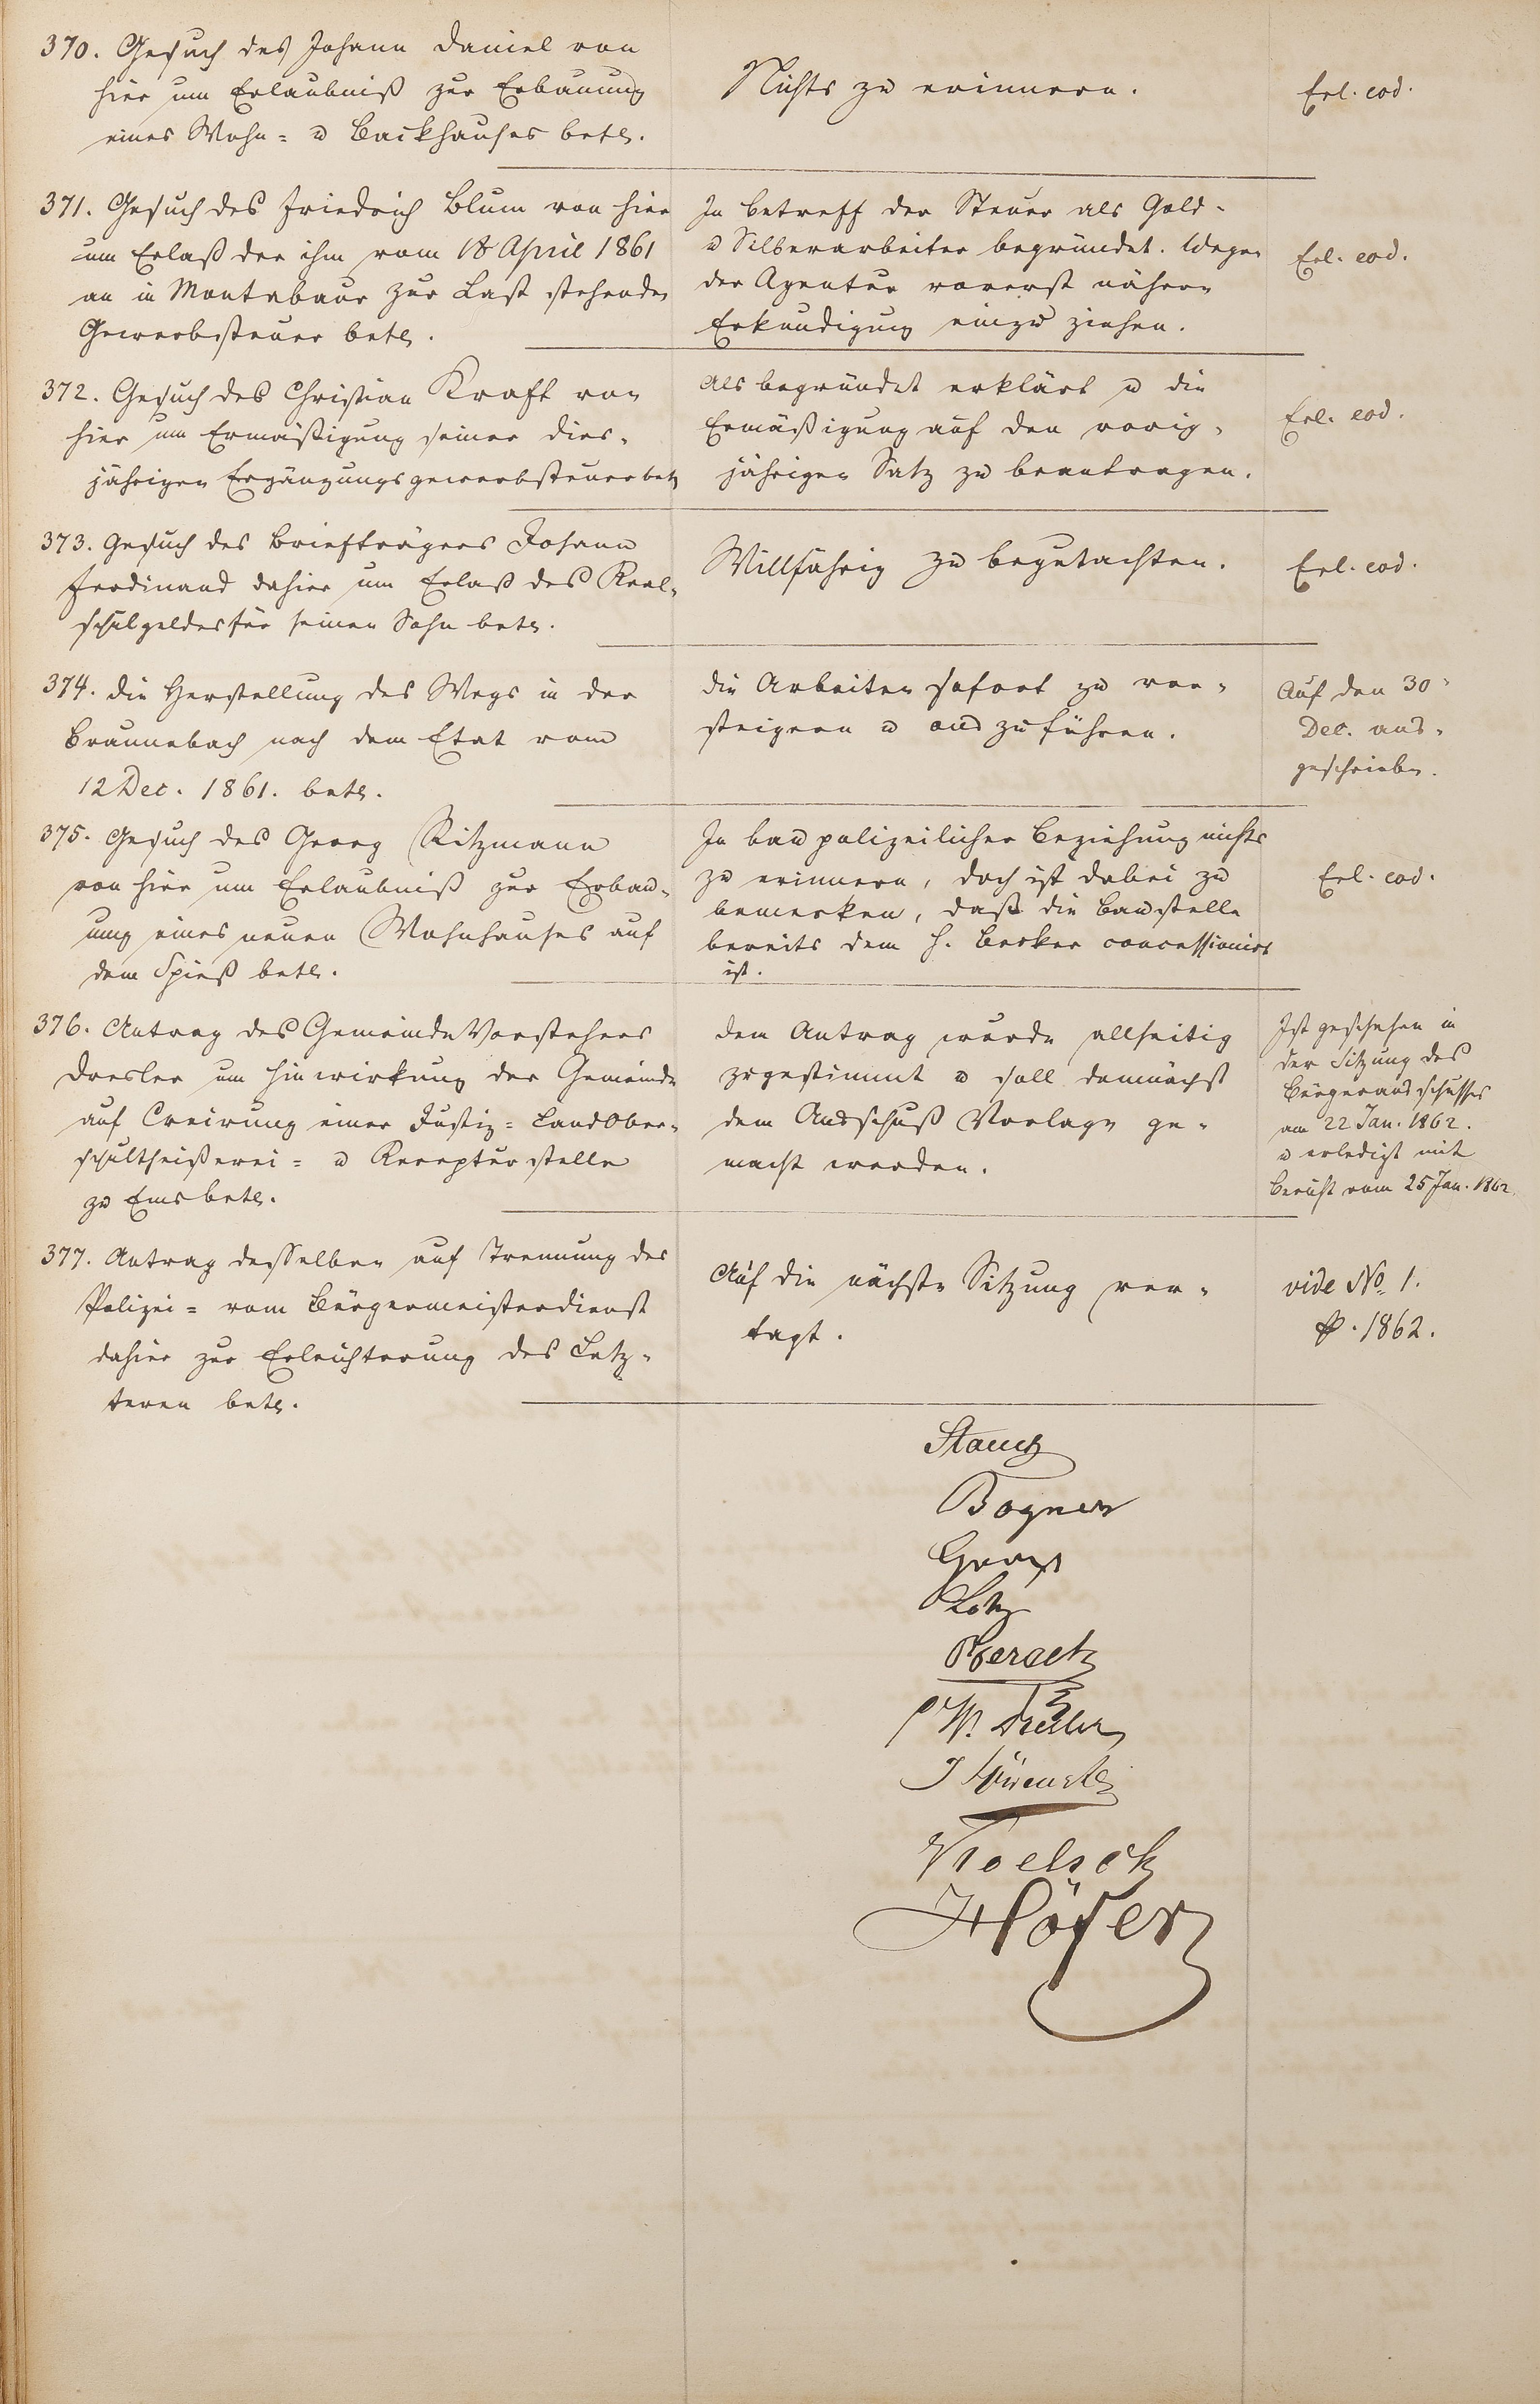 370. Gesuch des Johann Daniel von
hier um Erlaubniß zur Erbauung
eines Wohn= u Backhauses betr.
Nichts zu erinnern.
Erl. eod.
371. Gesuch des Friedrich Blum von hier
um Erlaß der ihm vom April 1861
an in Montabaur zur Last stehenden
Gewerbsteuer betr.
In Betreff der Steuer als Gold-
u Silberarbeiter begründet. Wegen
der Agentur vorerst nähere
Erkundigung einzu ziehen.
Erl. eod.
372. Gesuch des Christian Kraft von
hier um Ermäßigung seiner dies-
jährigen Ergänzungsgewerbsteuer betr
Als begründet erklärt u die
Ermäßigung auf den vorig-
jährigen Satz zu beantragen.
Erl. eod.
373. Gesuch des Briefträgers Johann
Ferdinand dahier um Erlaß des Real-
schulgeldes für seinen Sohn betr.
Willfährig zu begutachten.
Erl. eod.
374. Die Herstellung des Wegs in der
Braunebach nach dem Etat vom
12 Dec. 1861. betr.
Die Arbeiten sofort zu ver-
steigern u auszuführen.
Auf den 30
Dec. aus-
geschrieben.
375. Gesuch des Georg Ritzmann
von hier um Erlaubniß zur Erbau-
ung eines neuen Wohnhauses auf
dem Spieß betr.
In baupolizeilicher Beziehung nichts
zu erinnern, doch ist dabei zu
bemerken, daß die Baustelle
bereits dem H. Becker concessionirt
ist.
Erl. eod.
376. Antrag des Gemeinde Vorstehers
Dresler um Hinwirkung der Gemeinde
auf Creirung einer Justiz= LandOber-
schultheißerei= u Recepturstelle
zu Ems betr.
Dem Antrag wurde allseitig
zugestimmt u soll demnächst
dem Ausschuß Vorlage ge-
macht werden.
Ist geschehen in
der Sitzung des
Bürgerausschusses
am 22 Jan. 1862.
u erledigt mit
Bericht vom 25 Jan. 1862.
377. Antrag desselben auf Trennung des
Polizei= vom Bürgermeisterdienst
dahier zur Erleichterung des Letz-
teren betr.
Auf die nächste Sitzung ver-
tagt.
vide No. 1.
p. 1862.
Bogner
W. Dresler
Höfer